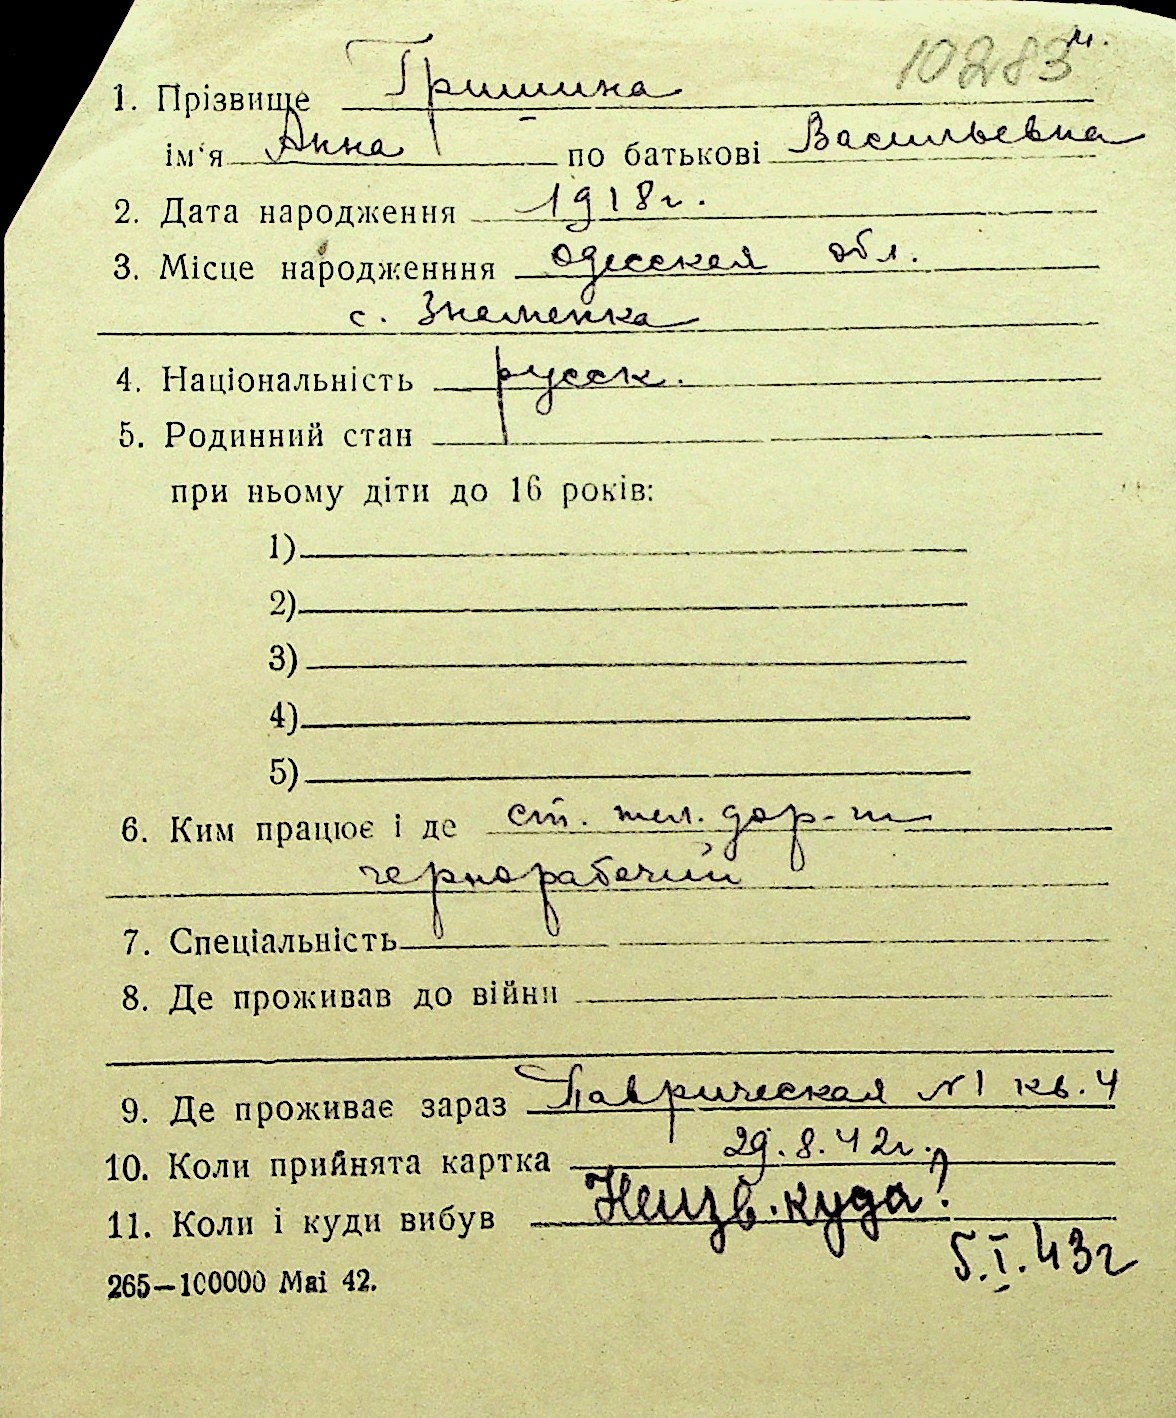 10283 м.
1. Прізвище Гришина
ім'я Анна по батькові Васильевна
2. Дата народження 1918 г.
3. Місце народженння Одесская обл.
с. Знаменка
4. Національність русск.
5. Родинний стан
при ньому діти до 16 років:
1)
2)
3)
4)
5)
6. Ким працює і де ст. жел. дор-ги
чернорабочий
7. Спеціальність
8. Де проживав до війни
9. Де проживає зараз Таврическая № 1 кв. 4
10. Коли прийнята картка 29.8.42 г.
11. Коли і куди вибув Неизв. куда!
5.I.43 г
265—100000 Mai 42.